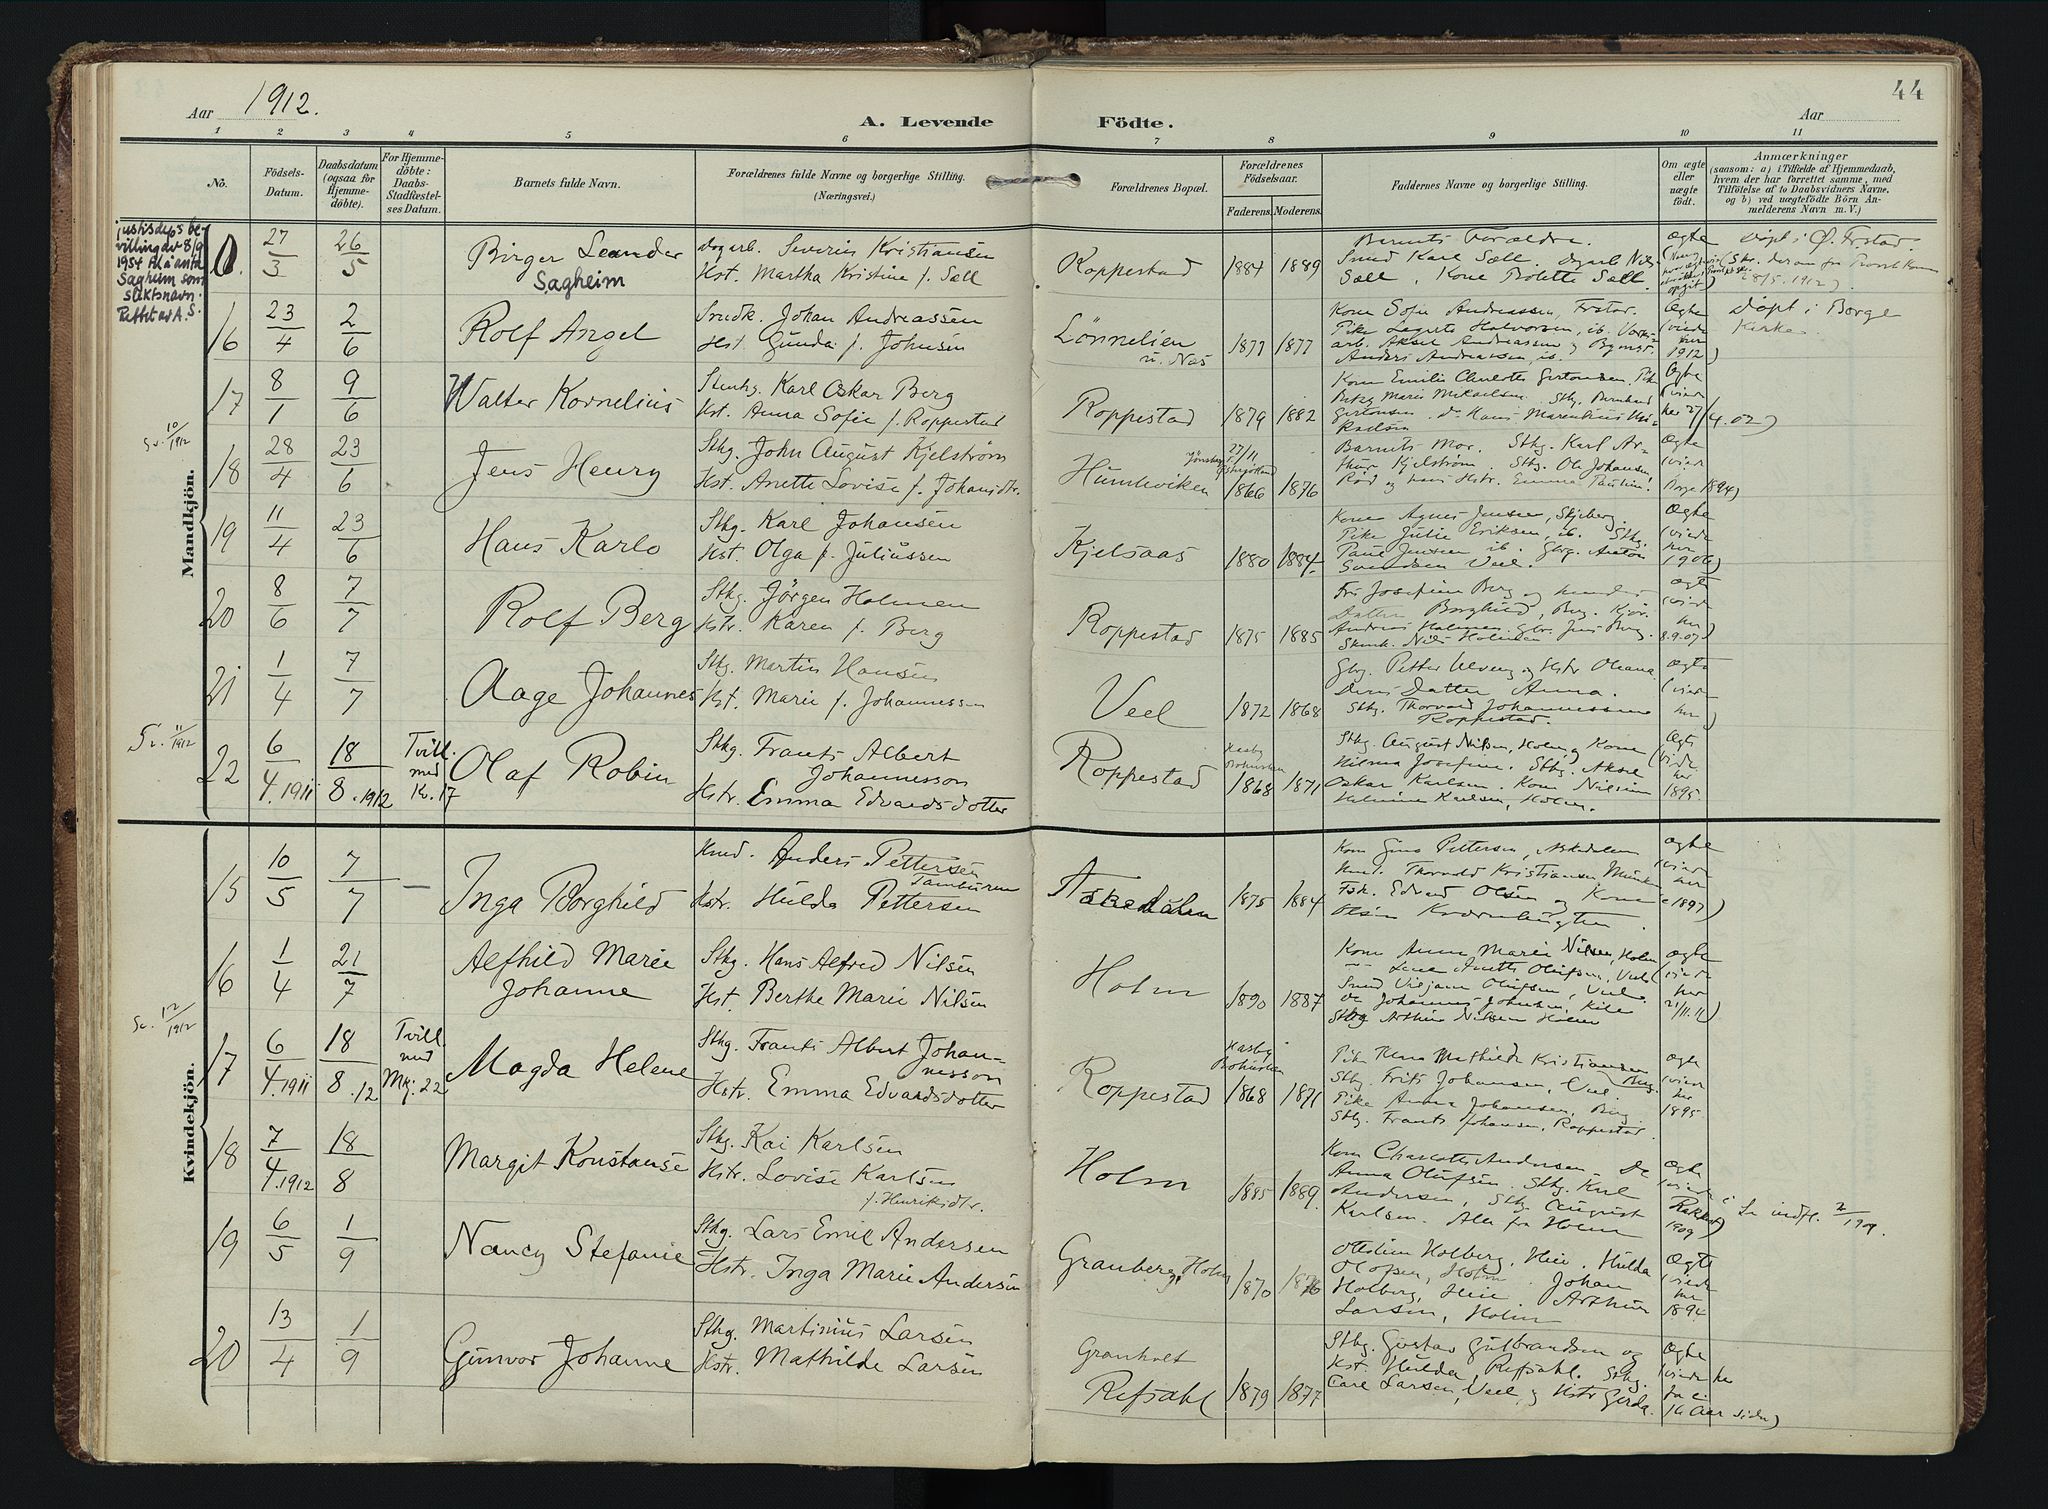 44
Aar 1912.
A. Levende Födte.
Aar
1 2 3 4 5 6 7 8 9 10 11
No.
Födsels-
Datum.
Daabsdatum
(ogsaa for
Hjemme-
döbte).
For Hjemme-
döbte:
Daabs-
Stadfæstel-
ses Datum.
Barnets fulde Navn.
Forældrenes fulde Navne og borgerlige Stilling.
(Næringsvei.)
Forældrenes Bopæl.
Forældrenes
Födselsaar.
Faderens.
Moderens.
Faddernes Navne og borgerlige Stilling.
Om ægte
eller
uægte
födt.
Anmærkninger
(saasom: a) i Tilfælde af Hjemmedaab,
hvem der har forrettet samme, med
Tilföielse af to Daabsvidners Navne,
og b) ved uægtefödte Börn An-
melderens Navn m. V.)
Mandkjön.
justisdeps be-
villing av 8/9
1954 til å anta
Sagheim som
slektsnavn.
Rettet av A.S.
0. 27/3 26/5
Birger Leander
Sagheim
Dagarb. Severin Kristiansen
Hst. Martha Kristine f. Sæll
Roppestad
1884 1889
Barnets Forældre.
Smed Karl Sæll. Dagarb. Nils
Sæll, Kone Bolette Sæll.
Ægte
Døpt i Ø. Frstad.
28/5. 1912)
16 23/4 2/6
Rolf Angel
Smdk. Johan Andreassen
Hst. Gunda f. Johnsen
Lønnelien
u. Næs
1877 1877
Kone Sofie Andreassen, Frstad.
Pike Lagerta Halvorsen, ib.
arb. Aksel Andreassen
Anders Andreassen, ib.
Ægte
(viede
her
1912)
Døpt i Borge
Kirke.
17 8/1 9/6
Walter Kornelius
Stenhg. Karl Oskar Berg
Hst. Anna Sofie f. Roppestad
Roppestad
1879 1882
Kone Emilie Charlotte Gertonsen. Pike
Betzy Marie Mikaelsen. Sthg. Bernhard
Gertonsen. do Hans Marentius
Karlsen
Ægte
(viede
her 27/4.02)
Sv. 10/1912
18 28/4 23/6
Jens Henry
Sthg. John August Kjelstrøm
Hst. Anette Lovise f. Johansdtr.
Humleviken
27/11
1866 1876
Barnets Mor. Sthg. Karl Ar-
thur Kjelstrøm. Sthg. Ole Johansen,
Rød og hans Hstr. Emma Pauline.
Ægte
(viede
Borge 1894)
19 11/4 23/6
Hans Karlo
Sthg. Karl Johansen
Hst. Olga f. Juliussen
Kjelsaas
1880 1884.
Kone Agnes Jensen, Skjeberg.
Pike Julie Eriksen, ib. Sthg.
Paul Jensen ib. Gbrg. Anton
Svendsen Veel.
Ægte
(viede
her
1906)
20 8/6 7/7
Rolf Berg
Sthg. Jörgen Holmen
Hstr. Karen f. Berg
Roppestad
1875 1885
Fru Josefine Berg og hendes
Datter Borghild, Berg.
Andreas Holmen. Gbr. Jens Berg.
Nils Holmen
Ægte
(viede
her
8.9.07)
21 1/4 7/7
Aage Johannes
Sthg. Martin Hansen
Hst. Marie f. Johannessen
Veel
1872 1868
Gbg. Petter og Hstr Oleana
Deres Datter Anna.
Sthg. Thorvald Johannessen
Roppestad.
Ægte
(viede
her)
Sv. 11/1912
22 6/4.1911 18/8.1912
Tvill.
med
Kv. 17
Olaf Robin
Sthg. Frants Albert
Johannesson
Hstr. Emma Edvardsdotter
Roppestad
1868 1871
Sthg. August Nilsen, Holm og Kone
Hilma Josefine. Sthg. Aksel
Oskar Karlsen. Kone
Karlsen, Holm.
Ægte
(viede
her
1895.
Kvindekjön.
15 10/5 7/7 —
Inga Borghild
Kmd. Anders Pettersen
Tamburen
Hstr. Hulda Pettersen
Askedalen
1875 1884
Kone Gina Pettersen, Askedalen
Kmd. Thorvald Kristiansen
Fsk. Edvard Olsen og Kone
Ægte
(viede
her
1897)
16 1/4 21/7
Alfhild Marie
Johanne
Sthg. Hans Alfred Nilsen
Hst. Berthe Marie Nilsen
Holm
1890 1887
Kone Anna Marie Nilsen, Holm
Lena Anette Olufsen, Veel
Smed Viljam Olufsen, Veel.
do Johannes Johnsen, Kile
Sthg Arthur Nilsen Holm
Ægte
(viede
her
21/11.11)
Sv. 12/1912
17 6/4.1911 18/8.12
Tvill.
med
Mk. 22
Magda Helene
Sthg. Frants Albert Johan-
nesson
Hstr. Emma Edvardsdotter
Roppestad
1868 1871
Pike Klara Mathilde Kristiansen
Berg.
Sthg. Frits Johansen, Veel.
Pike Anna Johansen, Berg
Sthg. Frants Johansen, Roppestad.
Ægte
(viede
her
1895
18 7/4.1912 18/8
Margit Konstanse
Sthg. Kai Karlsen
Hstr. Lovise Karlsen
f. Henriksdtr.
Holm
1885 1889.
Kone Charlotte Andersen. Do
Anna Olufsen. Sthg. Karl
Andersen, Sthg. August
Karlsen. Alle fra Holm
Ægte
(viede i
Rakkestad)
1909
Se indfl. 2/1909.
19 6/5 1/9
Nancy Stefanie
Sthg. Lars Emil Andersen
Hstr. Inga Marie Andersen
Granberg, Holm
1870 1876
Ottilie Holberg, Heie. Hulda
Olofsen, Holm. Johan
Holberg, Heie Arthur
Larsen, Holm
Ægte
(viede
her
1894
20 13/4 1/9
Gunvor Johanne
Sthg. Martinius Larsen
Hstr. Mathilde Larsen
Granholt
Refsahl
1879 1877
Sthg. Gustav Gulbrandsen og
Hst. Hulda, Refsahl. Sthg.
Carl Larsen, Veel og Hstr Gerda.
Ægte
(viede her
for
14 Aar siden)